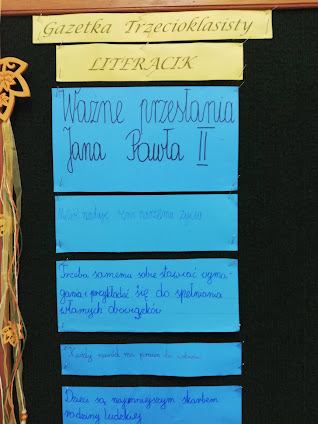 Gazetka Trzecioklasisty
LITERACIK
Ważne przesłania
Jana Pawła II
Miłość nadaje sens naszemu życiu
Trzeba samemu sobie stawiać wyma-
gania i przykładać się do spełniania
własnych obowiązków
Każdy naród ma prawo do
Dzieci są najmniejszym skarbem
rodziny ludzkiej